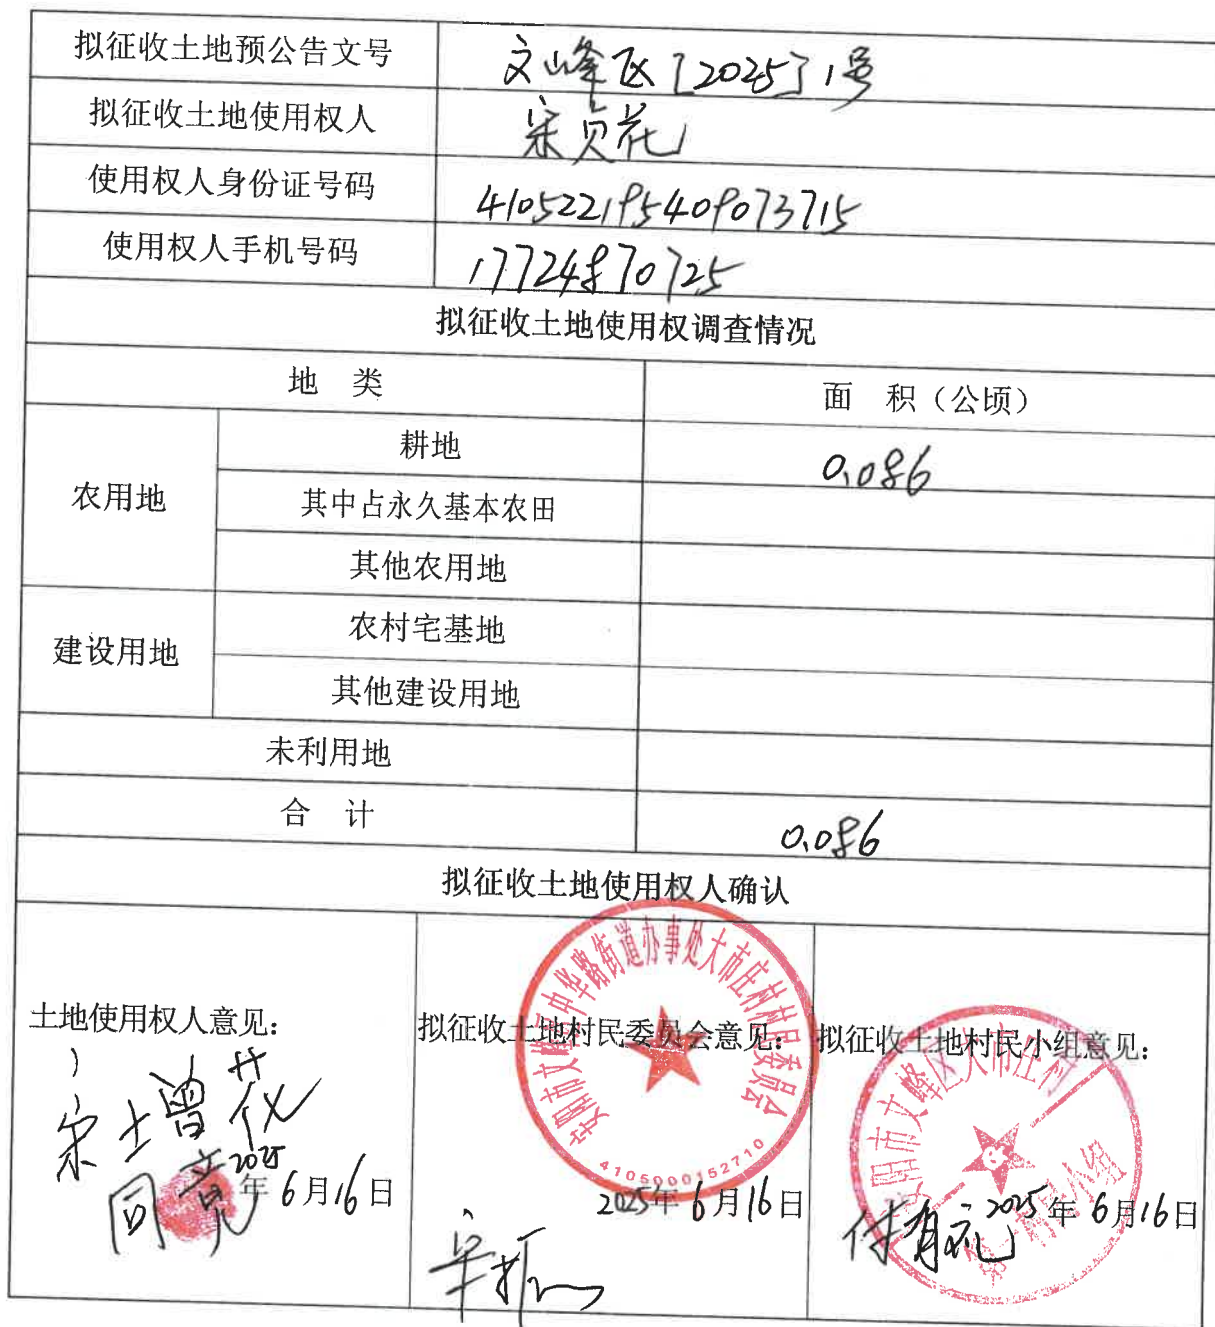 拟征收土地预公告文号 文峰区[2025]1号
拟征收土地使用权人 宋贞花
使用权人身份证号码 410522195409073715
使用权人手机号码 17724870725
拟征收土地使用权调查情况
地 类 面 积（公顷）
农用地 耕地 0.086
其中占永久基本农田
其他农用地
建设用地 农村宅基地
其他建设用地
未利用地
合 计 0.086
拟征收土地使用权人确认
土地使用权人意见：
宋增花
同意
2025年6月16日
拟征收土地村民委员会意见：
安阳市文峰区中华路街道办事处大市庄村村民委员会
4105000152710
2025年6月16日
拟征收土地村民小组意见：
安阳市文峰区大市庄村
村民小组
2025年6月16日